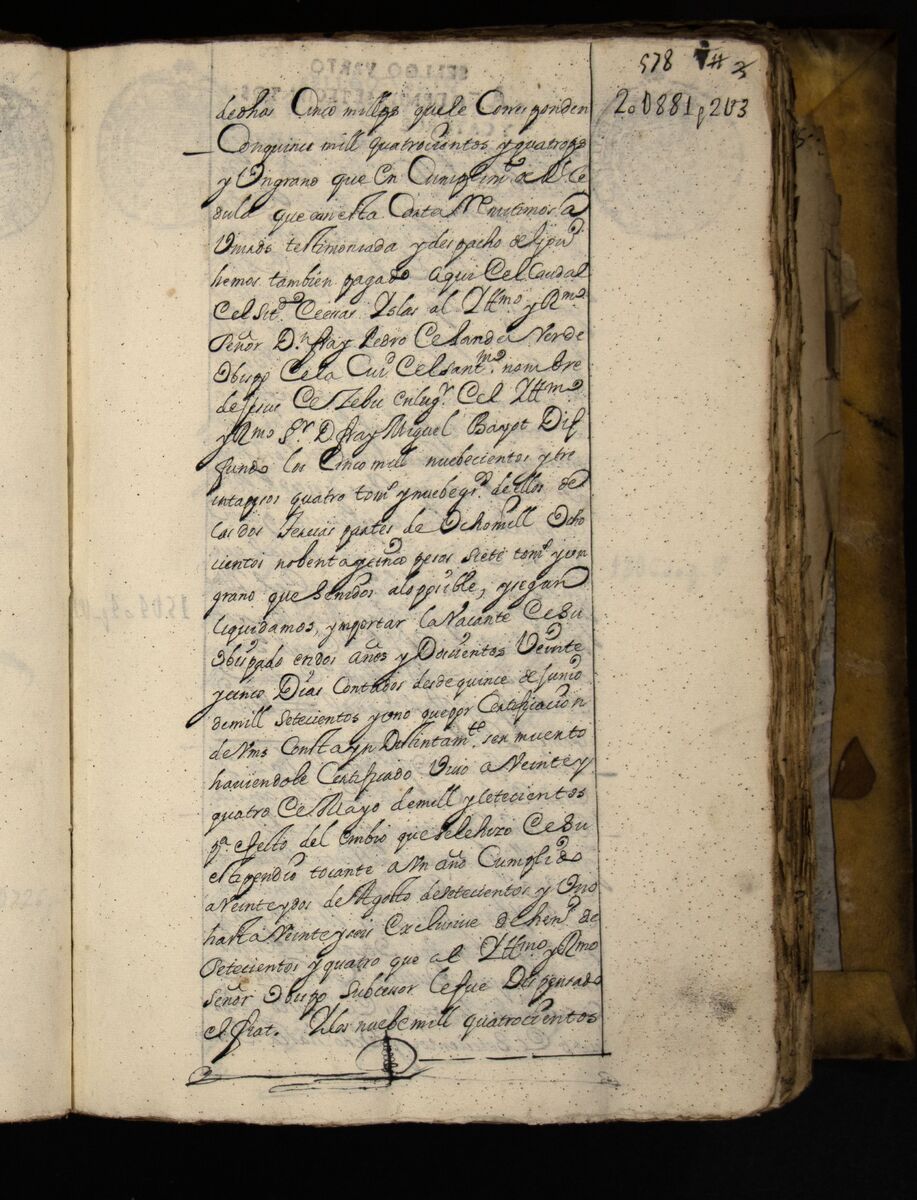 578
2o0881p2U3
dechas Cinco mill ps que le Corresponden
Con quince mill quatrocientos y quatro ps
y Un grano que en Cumplimto de Rl Ce
dula que con esta Carta Remitimos a
Vmds testimoniada y despacho de
hemos tambien pagado aqui Cel Caudal
Cel Sitdo Ceesas Yslas al Yllmo y Rmo
Señor Dn fray Pedro Celanda Verde
Obispo Cela Ciud Cel santmo nombre
de Jesus Ce Zebu en lugr Cel Yllmo
y Rmo Sr D fray Miguel Bayot Dif
funto los Cinco mill nuebecientos y tre
inta pesos quatro toms y nuebe gs de ellos de
las dos tercias partes de Ocho mill Ocho
cientos nobenta y cinco pesos siete toms y un
grano que Senidos alo posible, y segun
liquidamos, ymportar la Vacante Cesu
Obispado en dos años y Docientos Veinte
y cinco Dias Contados desde quince de Junio
de mill Setecientos y uno que por Certificacion
de Vms Consta yn Distintamte ser muerto
haviendole Certificado Vivo a Veinte y
quatro Ce Mayo de mill y setecientos
pa efecto del embio que se le hizo Cesu
estipendio tocante a Un año Cumplido
a Veinte y dos de Agosto de setecientos y Uno
hasta Veinte y seis Exclusive de hero de
Setecientos y quatro que al Yllmo y Rmo
Señor Obispo Subcessor le fue Dispensado
el fiat. Y los nuebe mill quatrocientos